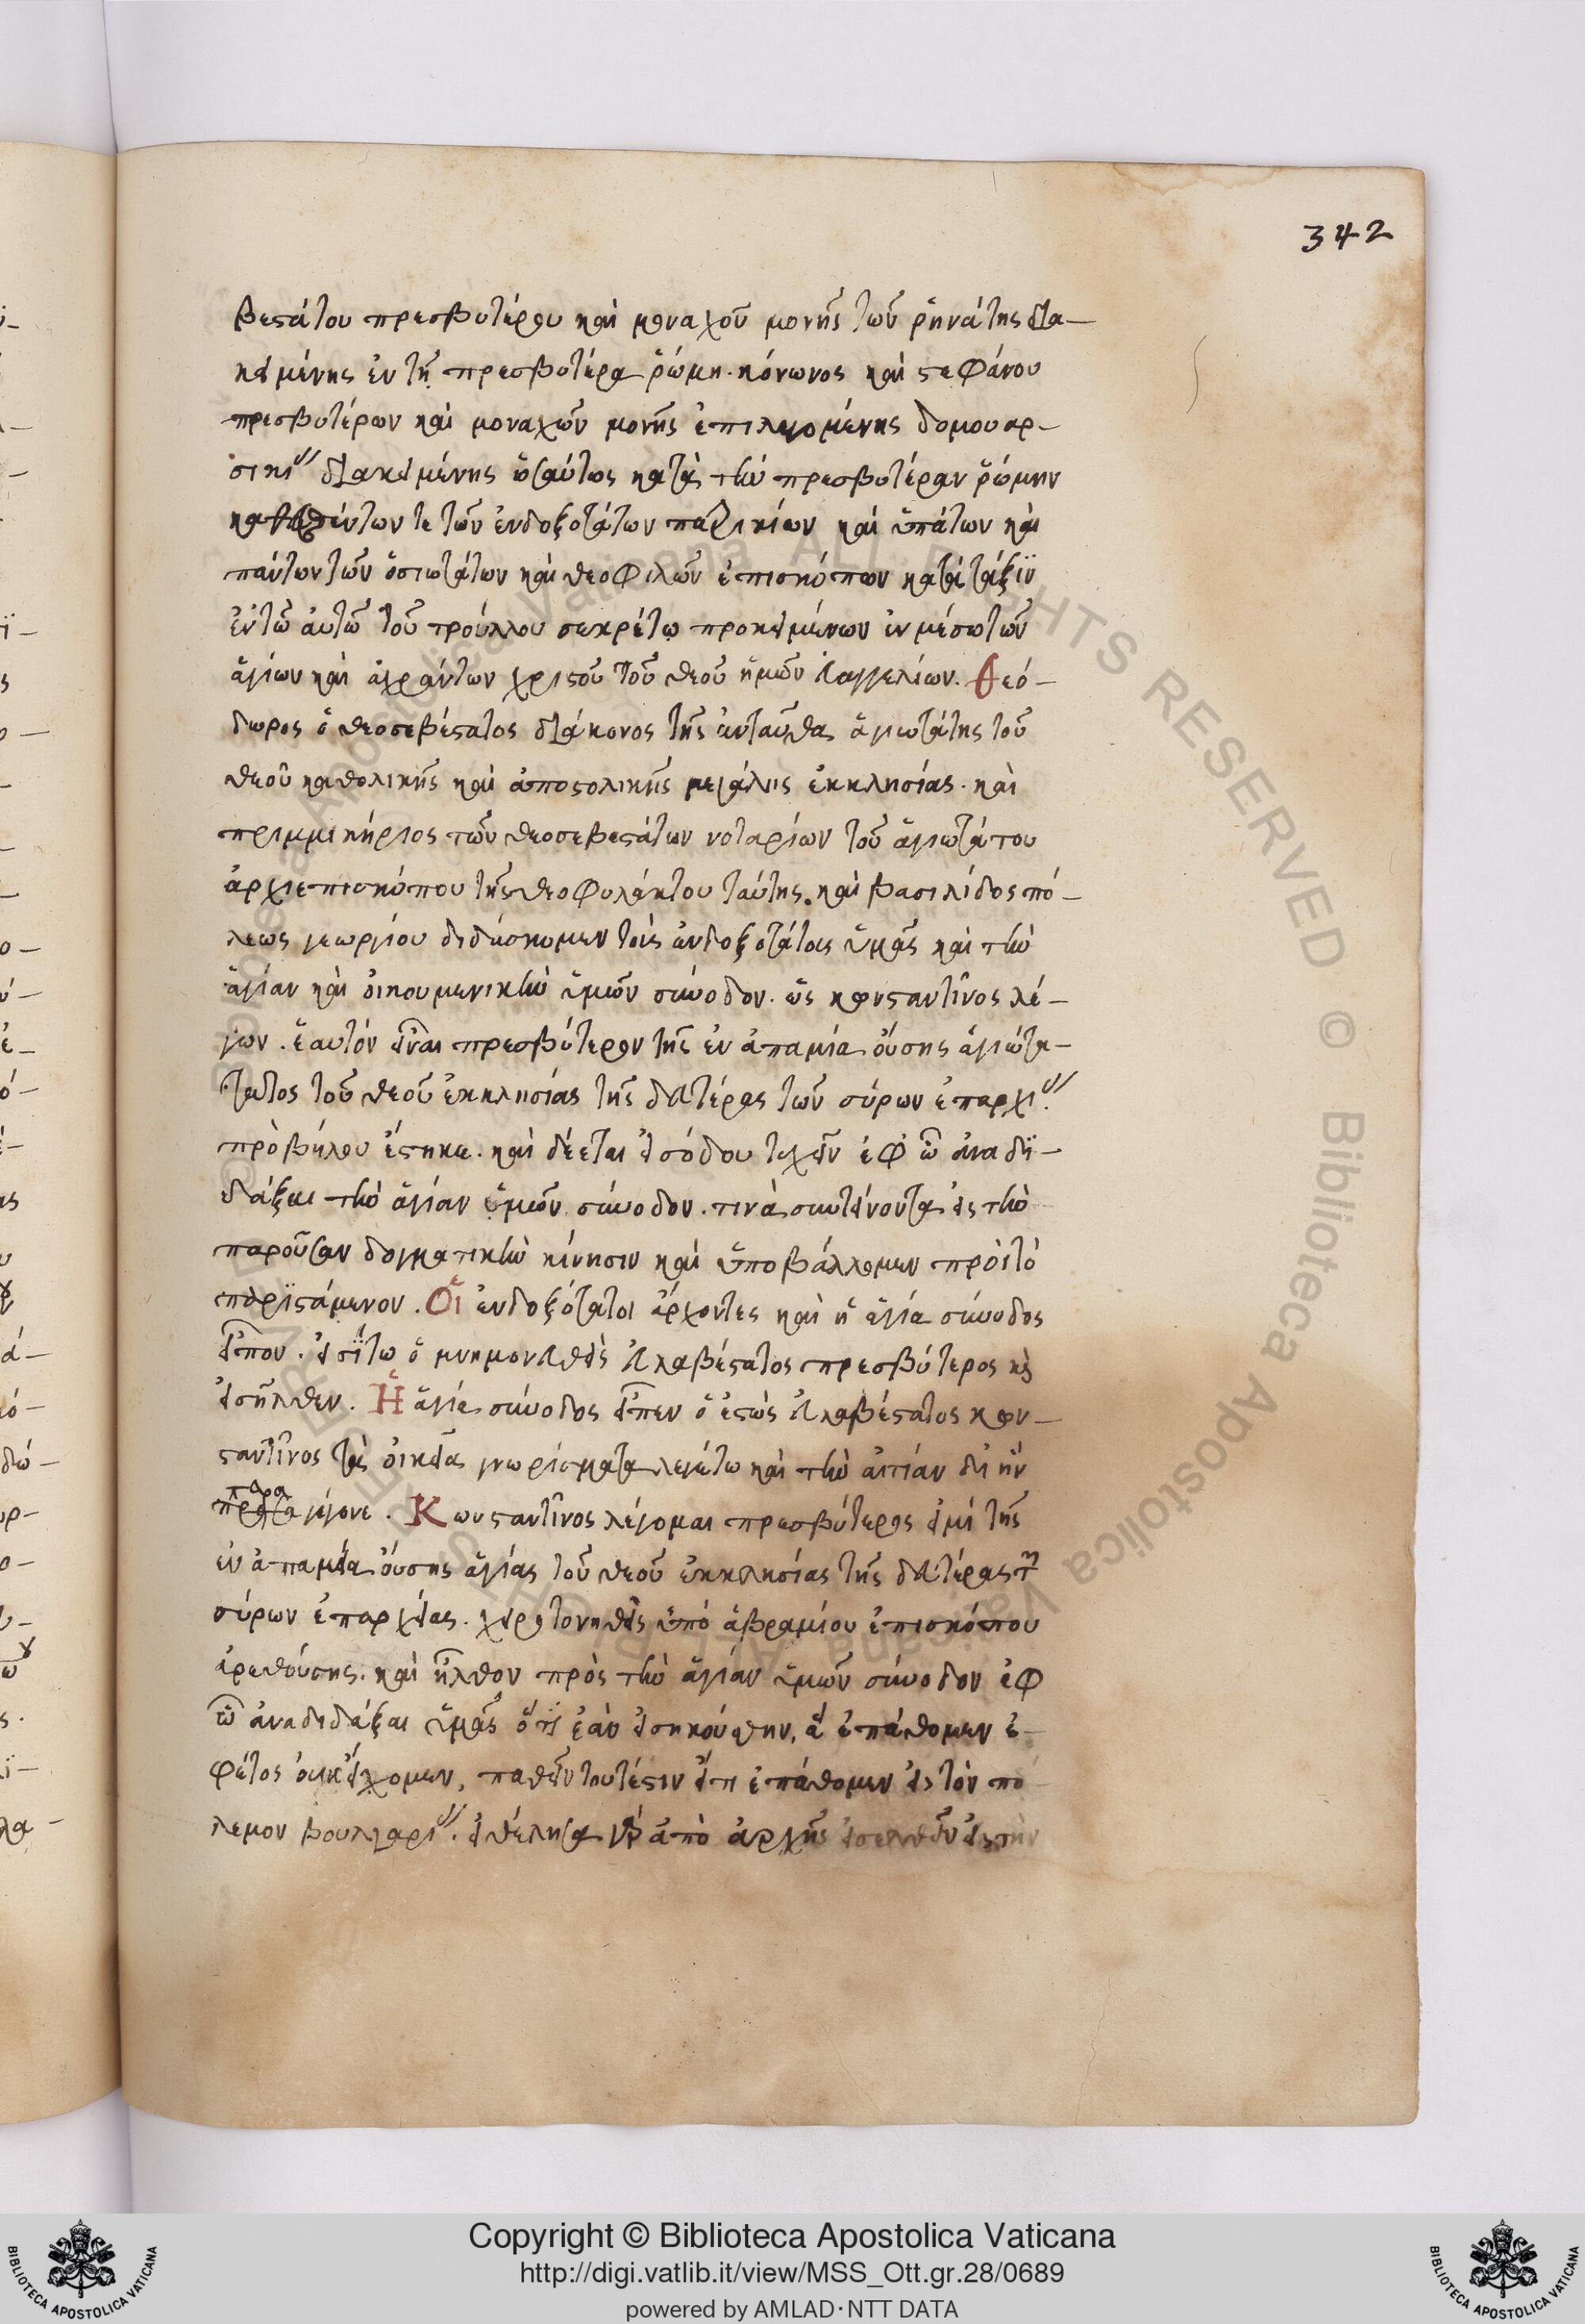 342
βεστάτου πρεσβυτέρου καὶ μοναχοῦ μονῆς τῶν ῥηνάτης δια-
κειμένης ἐν τῇ πρεσβυτέρα ῥώμη. κόνωνος καὶ στεφάνου
πρεσβυτέρων καὶ μοναχῶν μονῆς ἐπιλεγομένης δομουαρ-
σικι" διακειμένης ὡσαύτως κατὰ τὴν πρεσβυτέραν ῥώμην
τε τῶν ἐνδοξοτάτων πατρικίων καὶ ὑπάτων καὶ
πάντων τῶν ὁσιωτάτων καὶ θεοφιλῶν ἐπισκόπων κατὰ τάξιν
ἐν τῶ αὐτῶ τοῦ τρούλλου σεκρέτω προκειμένων ἐν μέσω τῶν
ἁγίων καὶ ἀχράντων χριστοῦ τοῦ θεοῦ ἡμῶν εὐαγγελίων. Θεό-
δωρος ὁ θεοσεβέστατος διάκονος τῆς ἐνταῦθα ἁγιωτάτης τοῦ
θεοῦ καθολικῆς καὶ ἀποστολικῆς μεγάλης ἐκκλησίας. καὶ
πριμμικήριος τῶν θεοσεβεστάτων νοταρίων τοῦ ἁγιωτάτου
ἀρχιεπισκόπου τῆς θεοφυλάκτου ταύτης. καὶ βασιλίδος πό-
λεως γεωργίου διδάσκομεν τοῖς ἐνδοξοτάτοις ὑμᾶς καὶ τὴν
ἁγίαν καὶ οἰκουμενικὴν ὑμῶν σύνοδον. ὡς κωνσταντῖνος λέ-
γων. ἑαυτόν εἶναι πρεσβύτερον τῆς ἐν ἀπαμία οὔσης ἁγιώτα-
τατος τοῦ θεοῦ ἐκκλησίας τῆς δευτέρας τῶν σύρων ἐπαρχι"
πρὸ βήλου ἕστηκε. καὶ δέεται εἰσόδου τυχεῖν ἐφ ὧ ἀναδι-
δάξαι τὴν ἁγίαν ὑμῶν σύνοδον. τινὰ συντείνοντα εἰς τὴν
παροῦσαν δογματικὴν κίνησιν καὶ ὑποβάλλομεν πρὸς τὸ
παριστάμενον. Οἱ ἐνδοξότατοι ἄρχοντες καὶ ἡ ἁγία σύνοδος
εἶπον. εἰσίτω ὁ μνημονευθεὶς εὐλαβέστατος πρεσβύτερος κὶ
εἰσῆλθεν. Ἡ ἁγία σύνοδος εἶπεν ὁ ἑστὼς εὐλαβέστατος κων-
σταντῖνος τὰ οἰκεῖα γνωρίσματα λεγέτω καὶ τὴν αἰτίαν δι ἣν
παρα
γέγονε. Κωνσταντῖνος λέγομαι πρεσβύτερος εἰμί τῆς
ἐν ἀπαμεία οὔσης ἁγίας τοῦ θεοῦ ἐκκλησίας τῆς δευτέρας τῶν
σύρων ἐπαρχείας. χειροτονηθεὶς ὑπὸ ἀβραμίου ἐπισκόπου
ἀρεθούσης. καὶ ἦλθον πρὸς τὴν ἁγίαν ὑμῶν σύνοδον ἐφ
ὧ ἀναδιδάξαι ὑμᾶς ὅτι ἐὰν εἰσηκούσθην, ἃ ἐπάθομεν ἐ-
φέτος οὐκ εἴχομεν, παθεῖν τουτέστιν ὅτι ἐπάθομεν εἰς τὸν πο
λεμον βουλγαρι". ἠθέλησα γὰρ ἀπὸ ἀρχῆς εἰσελθεῖν εἰς τὴν